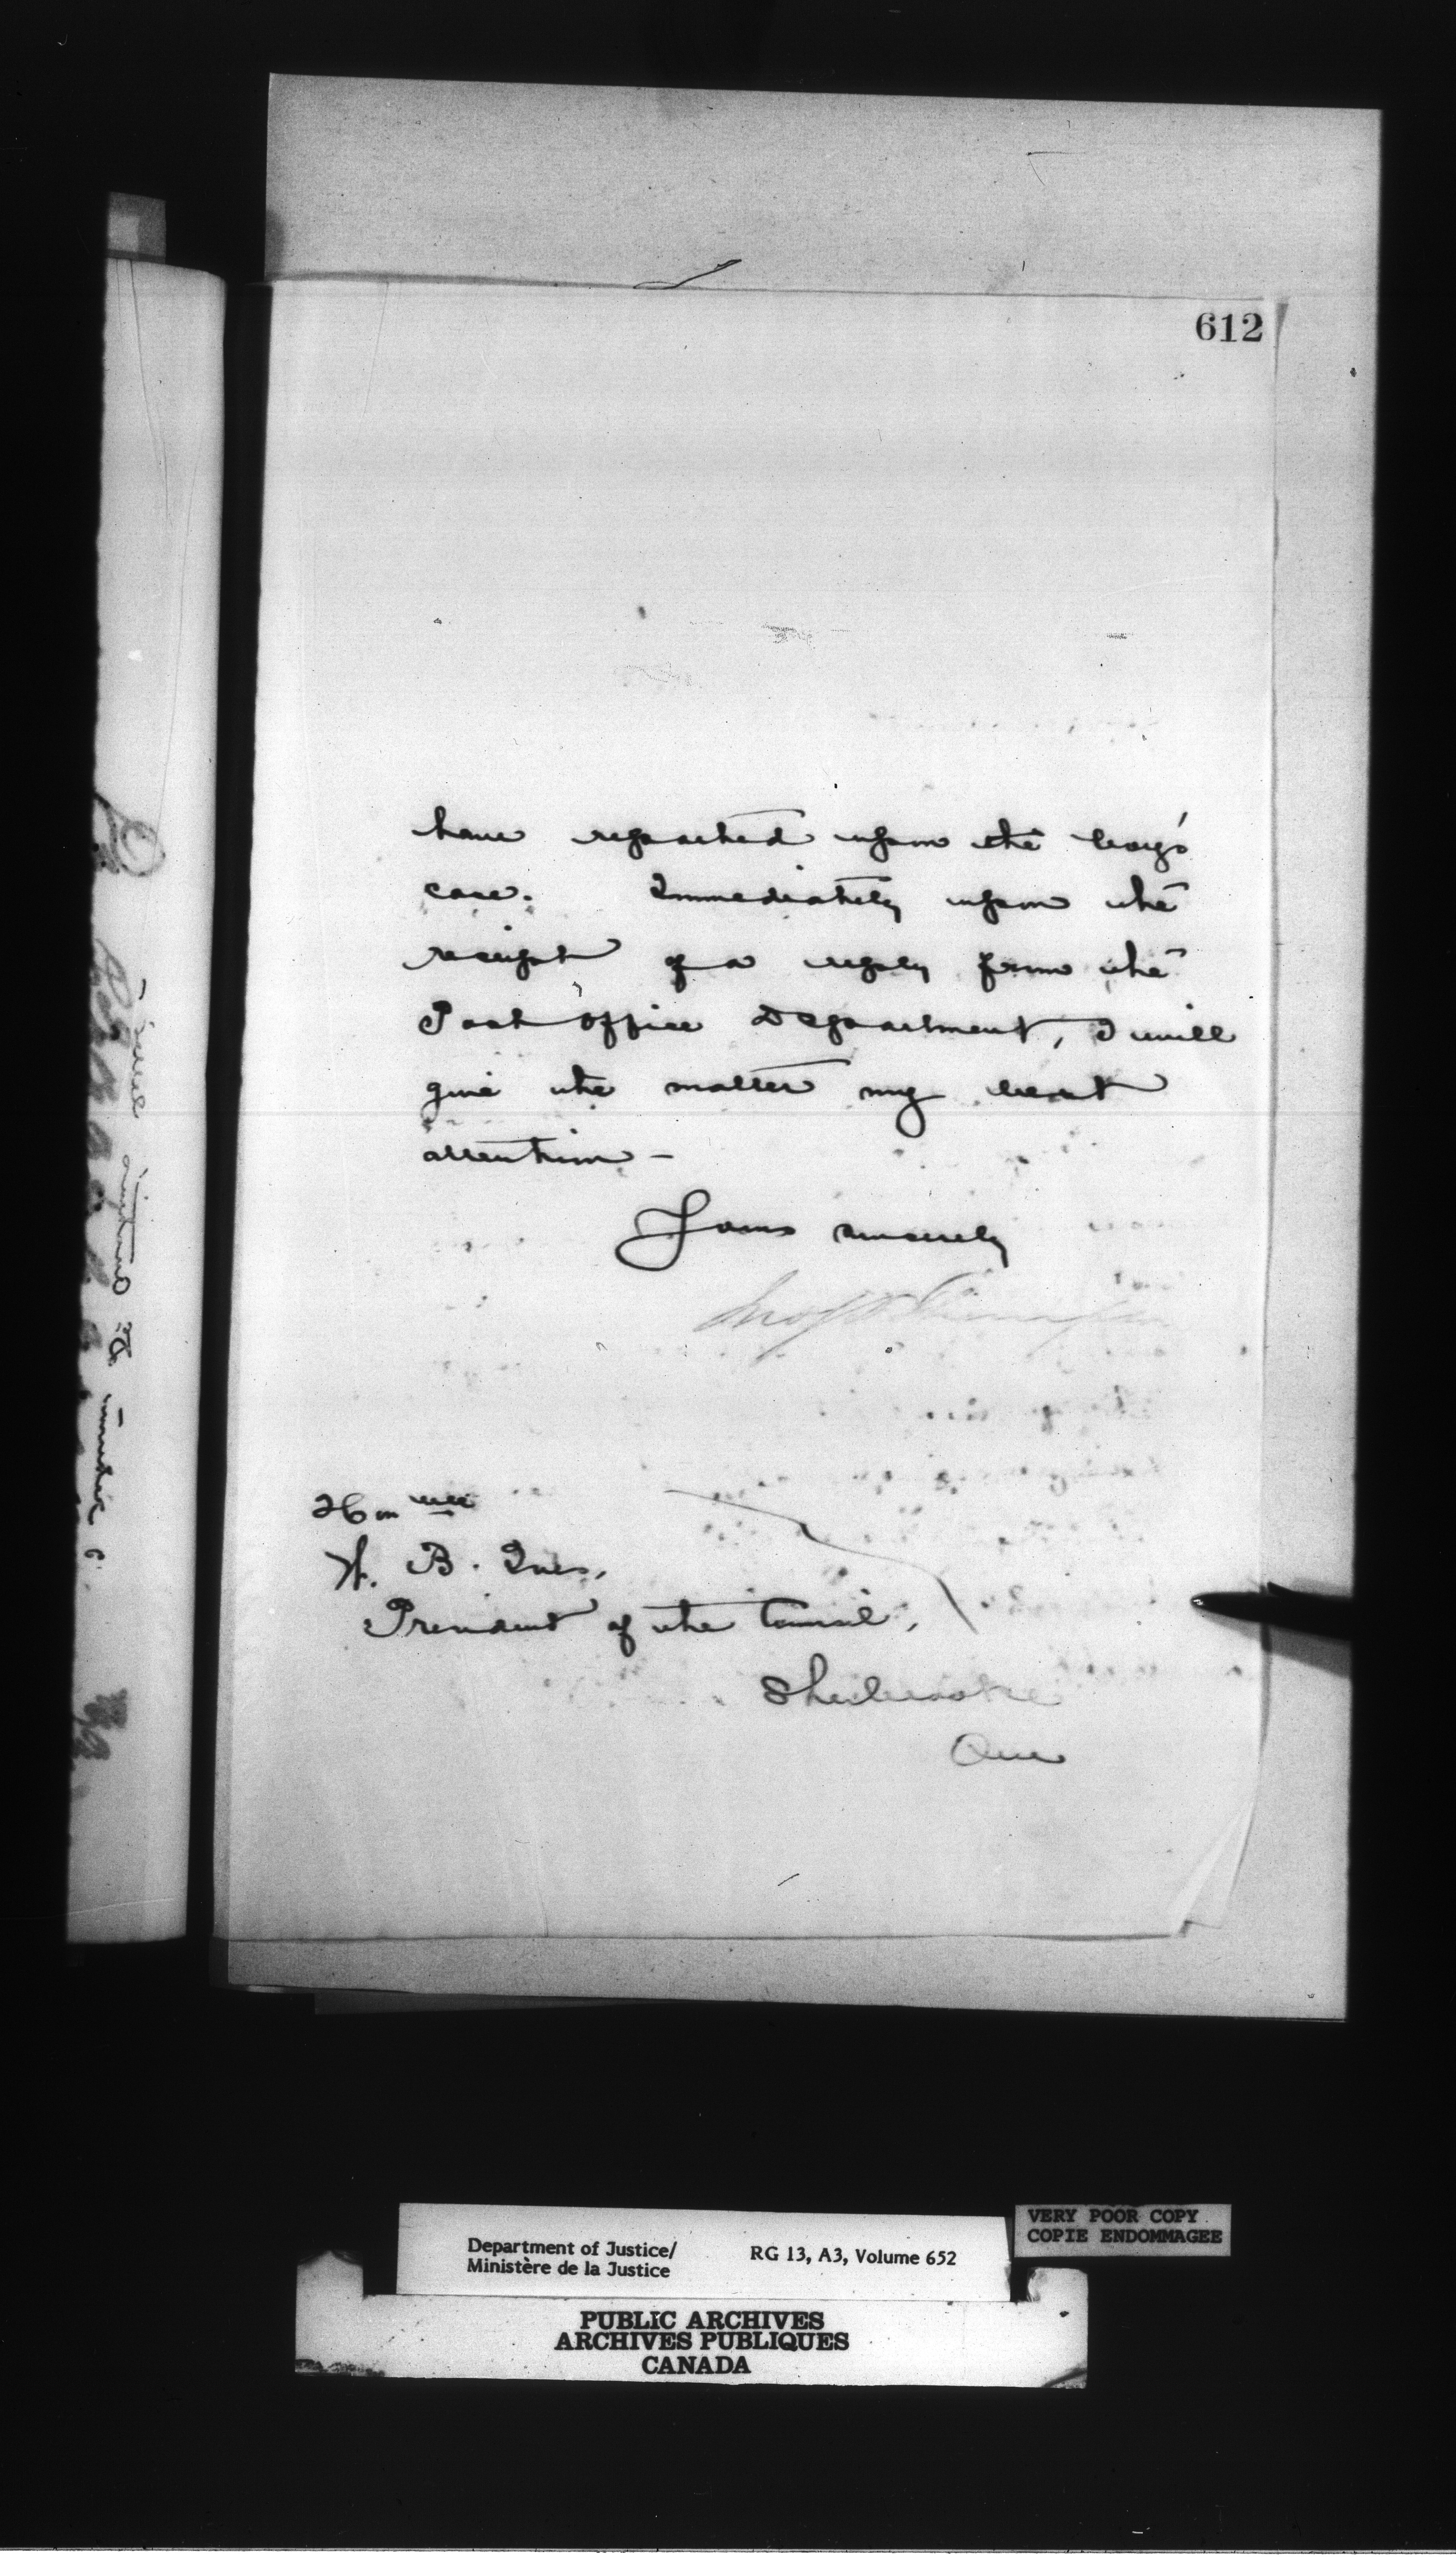 612
have reported upon the boy's
case. Immediately upon the
receipt of a reply from the
Post Office Department, I will
give the matter my best
attention -
Yours sincerely
Jno S D Thompson
Honble
W. B. Ives,
President of the Council,
Sherbrooke
Que
VERY POOR COPY
COPIE ENDOMMAGEE
Department of Justice/
Ministère de la Justice
RG 13, A3, Volume 652
PUBLIC ARCHIVES
ARCHIVES PUBLIQUES
CANADA